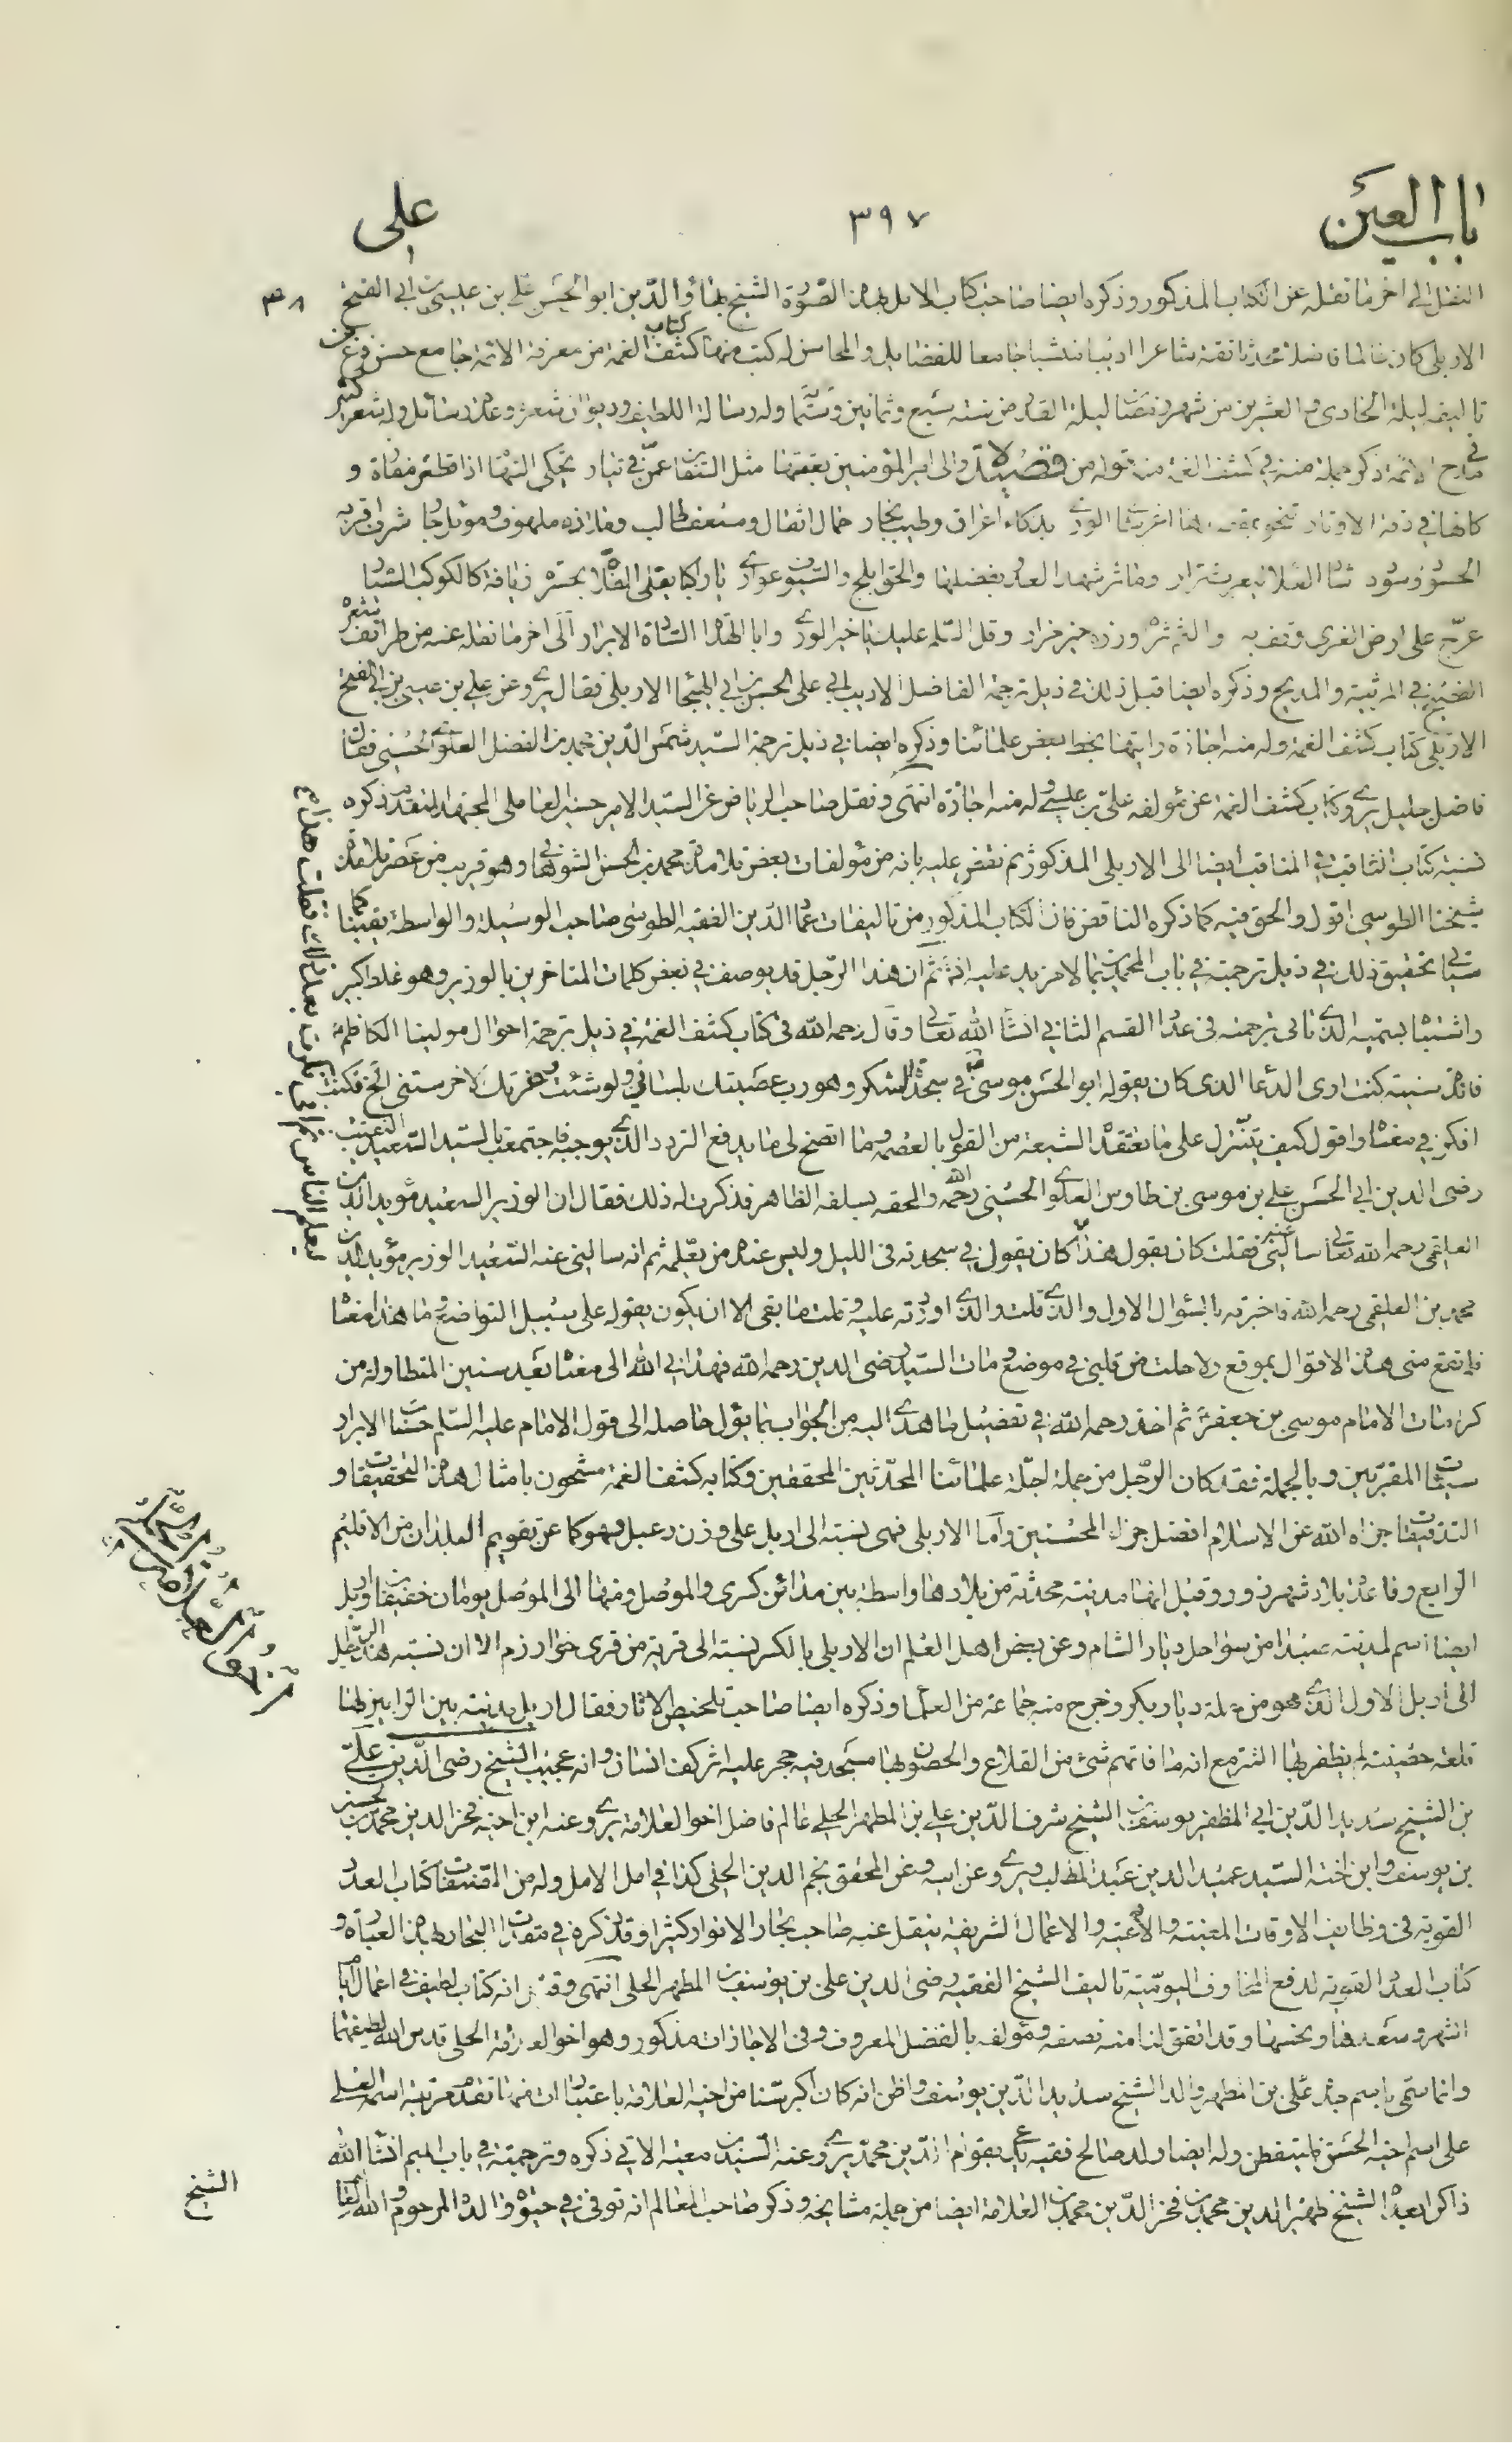 باب العين
٣٩٧
علي
النقل الى اخر ما نقله عن الكتاب المذكور وذكره ايضا صاحب كتاب الامل بهذه الصورة الشيخ بهاء الدين ابو الحسن علي بن عيسى بن ابي الفتح
الاربلي كان عالما فاضلا محدثا ثقة شاعرا اديبا منشيا جامعا للفضايل والمحاسن له كتب منها كتاب كشف الغمة في معرفة الائمة جامع حسن فرغ من
تاليفه ليلة الحادى والعشرين من شهر رمضان ليلة القدر من سنة سبع وثمانين وستما وله رسالة الطيف وديوان شعر وعدة رسائل وله شعر كثير
في مدح الائمة ذكر جملة منه في كشف الغمة منه قوله من قصيدة والى امير المؤمنين بعثتها مثل السفاين عمن في تيار تحكى السهام اذا قطعن مفازة و
كانها في دقة الاوتار تنحو بمقصدها اغر شأى الورى بذكاء اعراق وطيب نجار حمال اثقال ومسعف طالب وملاذ ملهوف وموئل جار شرف اقر به
الحسود وسودد شاد العلاء ليعرب ونزار ومآثر شهد العدو بفضلها والحق ابلج والسيوف عوارى يا راكبا يفلى الفلاة بجسرة زيافة كالكوكب السيار
عرج على ارض الغرى وقف به والثم ثراه وزره خير مزار وقل السلام عليك يا خير الورى وابا الهداة السادة الابرار الى اخر ما نقله عنه من طرائف شعره
في المرثية والمديح وذكره ايضا قبل ذلك في ذيل ترجمة الفاضل الاديب ابي على الحسن بن ابي الهيجا الاربلي فقال يروى عن علي بن عيسى بن ابي الفتح
الاربلي كتاب كشف الغمة وله منه اجازة رايتها بخط بعض علمائنا وذكره ايضا في ذيل ترجمة السيد شمس الدين محمد بن الفضل العلوي الحسني فقال
فاضل جليل يروى كتاب كشف الغمة عن مؤلفه علي بن عيسى وله منه اجازة انتهى ونقل صاحب الرياض عن السيد الامير حسين العاملى المجتهد المتقدم ذكره
نسبة كتاب الثاقب في المناقب ايضا الى الاربلي المذكور ثم نقض عليه بانه من مؤلفات بعض تلامذة محمد بن الحسن الشوهاني وهو قريب من عصر تلامذة
شيخنا الطوسي اقول والحق فيه كما ذكره الناقض فان الكتاب المذكور من تاليفات عماد الدين الفقيه الطوسي صاحب الوسيلة والواسطة يقينا كما
سياتي تحقيق ذلك في ذيل ترجمته في باب المحمدين بما لا مزيد عليه انش ثم ان هذا الرجل قد يوصف في بعض كلمات المتاخرين بالوزير وهو غلط كبير
واشتباه بسميه الذى تاتى ترجمته في عداد القسم الثاني انشاء الله تعالى وقال رحمه الله في كتاب كشف الغمة في ذيل ترجمة احوال مولينا الكاظم
فائدة سنية كنت ارى الدعاء الذى كان يقوله ابو الحسن موسى في سجدة الشكر وهو رب عصيتك بلساني ولو شئت وعزتك لاخرستنى الخ فكنت
افكر في معناه واقول كيف يتنزل على ما تعتقده الشيعة من القول بالعصمة وما اتضح لى ما يدفع التردد الذى يوجبه فاجتمعت بالسيد السعيد النقيب
رضى الدين ابي الحسن علي بن موسى بن طاوس العلوي الحسنى رحمه الله والحقه بسلفه الطاهر فذكرت له ذلك فقال ان الوزير السعيد مؤيد الدين
العلقمي رحمه الله تعالى سالني عنه فقلت كان يقول هذا كان يقول في سجدته في الليل وليس عنده من يعلمه ثم انه سالنى عنه السعيد الوزير مؤيد الدين
محمد بن العلقمي رحمه الله فاخبرته بالسؤال الاول والذى قلت والذى اوردته عليه وقلت ما بقى الا ان يكون يقوله على سبيل التواضع وما هذا معناه
فلم تقع منى هذه الاقوال بموقع ولا حلت من قلبى في موضع ومات السيد رضى الدين رحمه الله فهدانى الله الى معناه بعد سنين المتطاولة من
كرامات الامام موسى بن جعفر ثم اخذ رحمه الله في تفصيل ما هدى اليه من الجواب بما يؤل حاصله الى قول الامام عليه السلم حسنات الابرار
سيئات المقربين وبالجملة فقد كان الرجل من جملة اجلة علمائنا المحدثين المحققين وكتابه كشف الغمة مشحون بامثال هذه التحقيقات و
التدقيقات جزاه الله عن الاسلام افضل جزاء المحسنين واما الاربلي فهى نسبة الى اربل على وزن دعبل وهو كما عن تقويم البلدان من الاقليم
الرابع وقاعدة بلاد شهرزور وقيل انها مدينة محدثة من بلادها واسطة بين مدائن كسرى والموصل ومنها الى الموصل يومان خفيفان واربل
ايضا اسم لمدينة صيدا من سواحل ديار الشام وعن بعض اهل العلم ان الاربلي بالكسر نسبة الى قرية من قرى خوارزم الا ان نسبة هذا الرجل
الى اربل الاول الذى هو من جملة ديار بكر وخرج منه جماعة من العلماء وذكره ايضا صاحب تلخيص الاثار فقال اربل مدينة بين الزابين لها
قلعة حصينة لم يظفر بها التتر مع انه ما فاتهم شئ من القلاع والحصون ولها مسجد فيه حجر عليه اثر كف انسان وانه عجيب الشيخ رضى الدين علي
بن الشيخ سديد الدين ابي المظفر يوسف بن الشيخ شرف الدين علي بن المطهر الحلي عالم فاضل اخو العلامة يروى عنه ابن اخيه فخر الدين محمد بن الحسن
بن يوسف وابن اخته السيد عميد الدين عبد المطلب ويروى عن ابيه وعن المحقق نجم الدين الحلي كذا في امل الامل وله من المصنفات كتاب العدد
القوية في وظايف الاوقات المعينة والادعية والاعمال الشريفة ينقل عنه صاحب بحار الانوار كثيرا وقد ذكره في مقدمات البحار بهذه العبارة و
كتاب العدد القوية لدفع المخاوف اليومية تاليف الشيخ الفقيه رضى الدين على بن يوسف بن المطهر الحلي انتهى وقيل انه كتاب لطيف في اعمال ايام
الشهر وسعدها ونحسها وقد اتفق لنا منه نصفه ومؤلفه بالفضل المعروف وفى الاجازات مذكور وهو اخو العلامة الحلي قدس الله لطيفهما
وانما سمى باسم جده علي بن المطهر والد الشيخ سديد الدين يوسف واظن انه كان اكبر سنا من اخيه العلامة باعتبارات منها تقدم مرتبة اسمه العلي
على اسم اخيه الحسن فليتفطن وله ايضا ولد صالح فقيه يدعى بقوام الدين محمد يروى عنه السيد بن معية الاتي ذكره وترجمته في باب الميم انشاء الله
ذاكرا بعده الشيخ ظهير الدين محمد بن فخر الدين محمد بن العلامة ايضا من جملة مشايخه وذكر صاحب المعالم انه توفى في حيوة والده المرحوم والله العالم
الشيخ